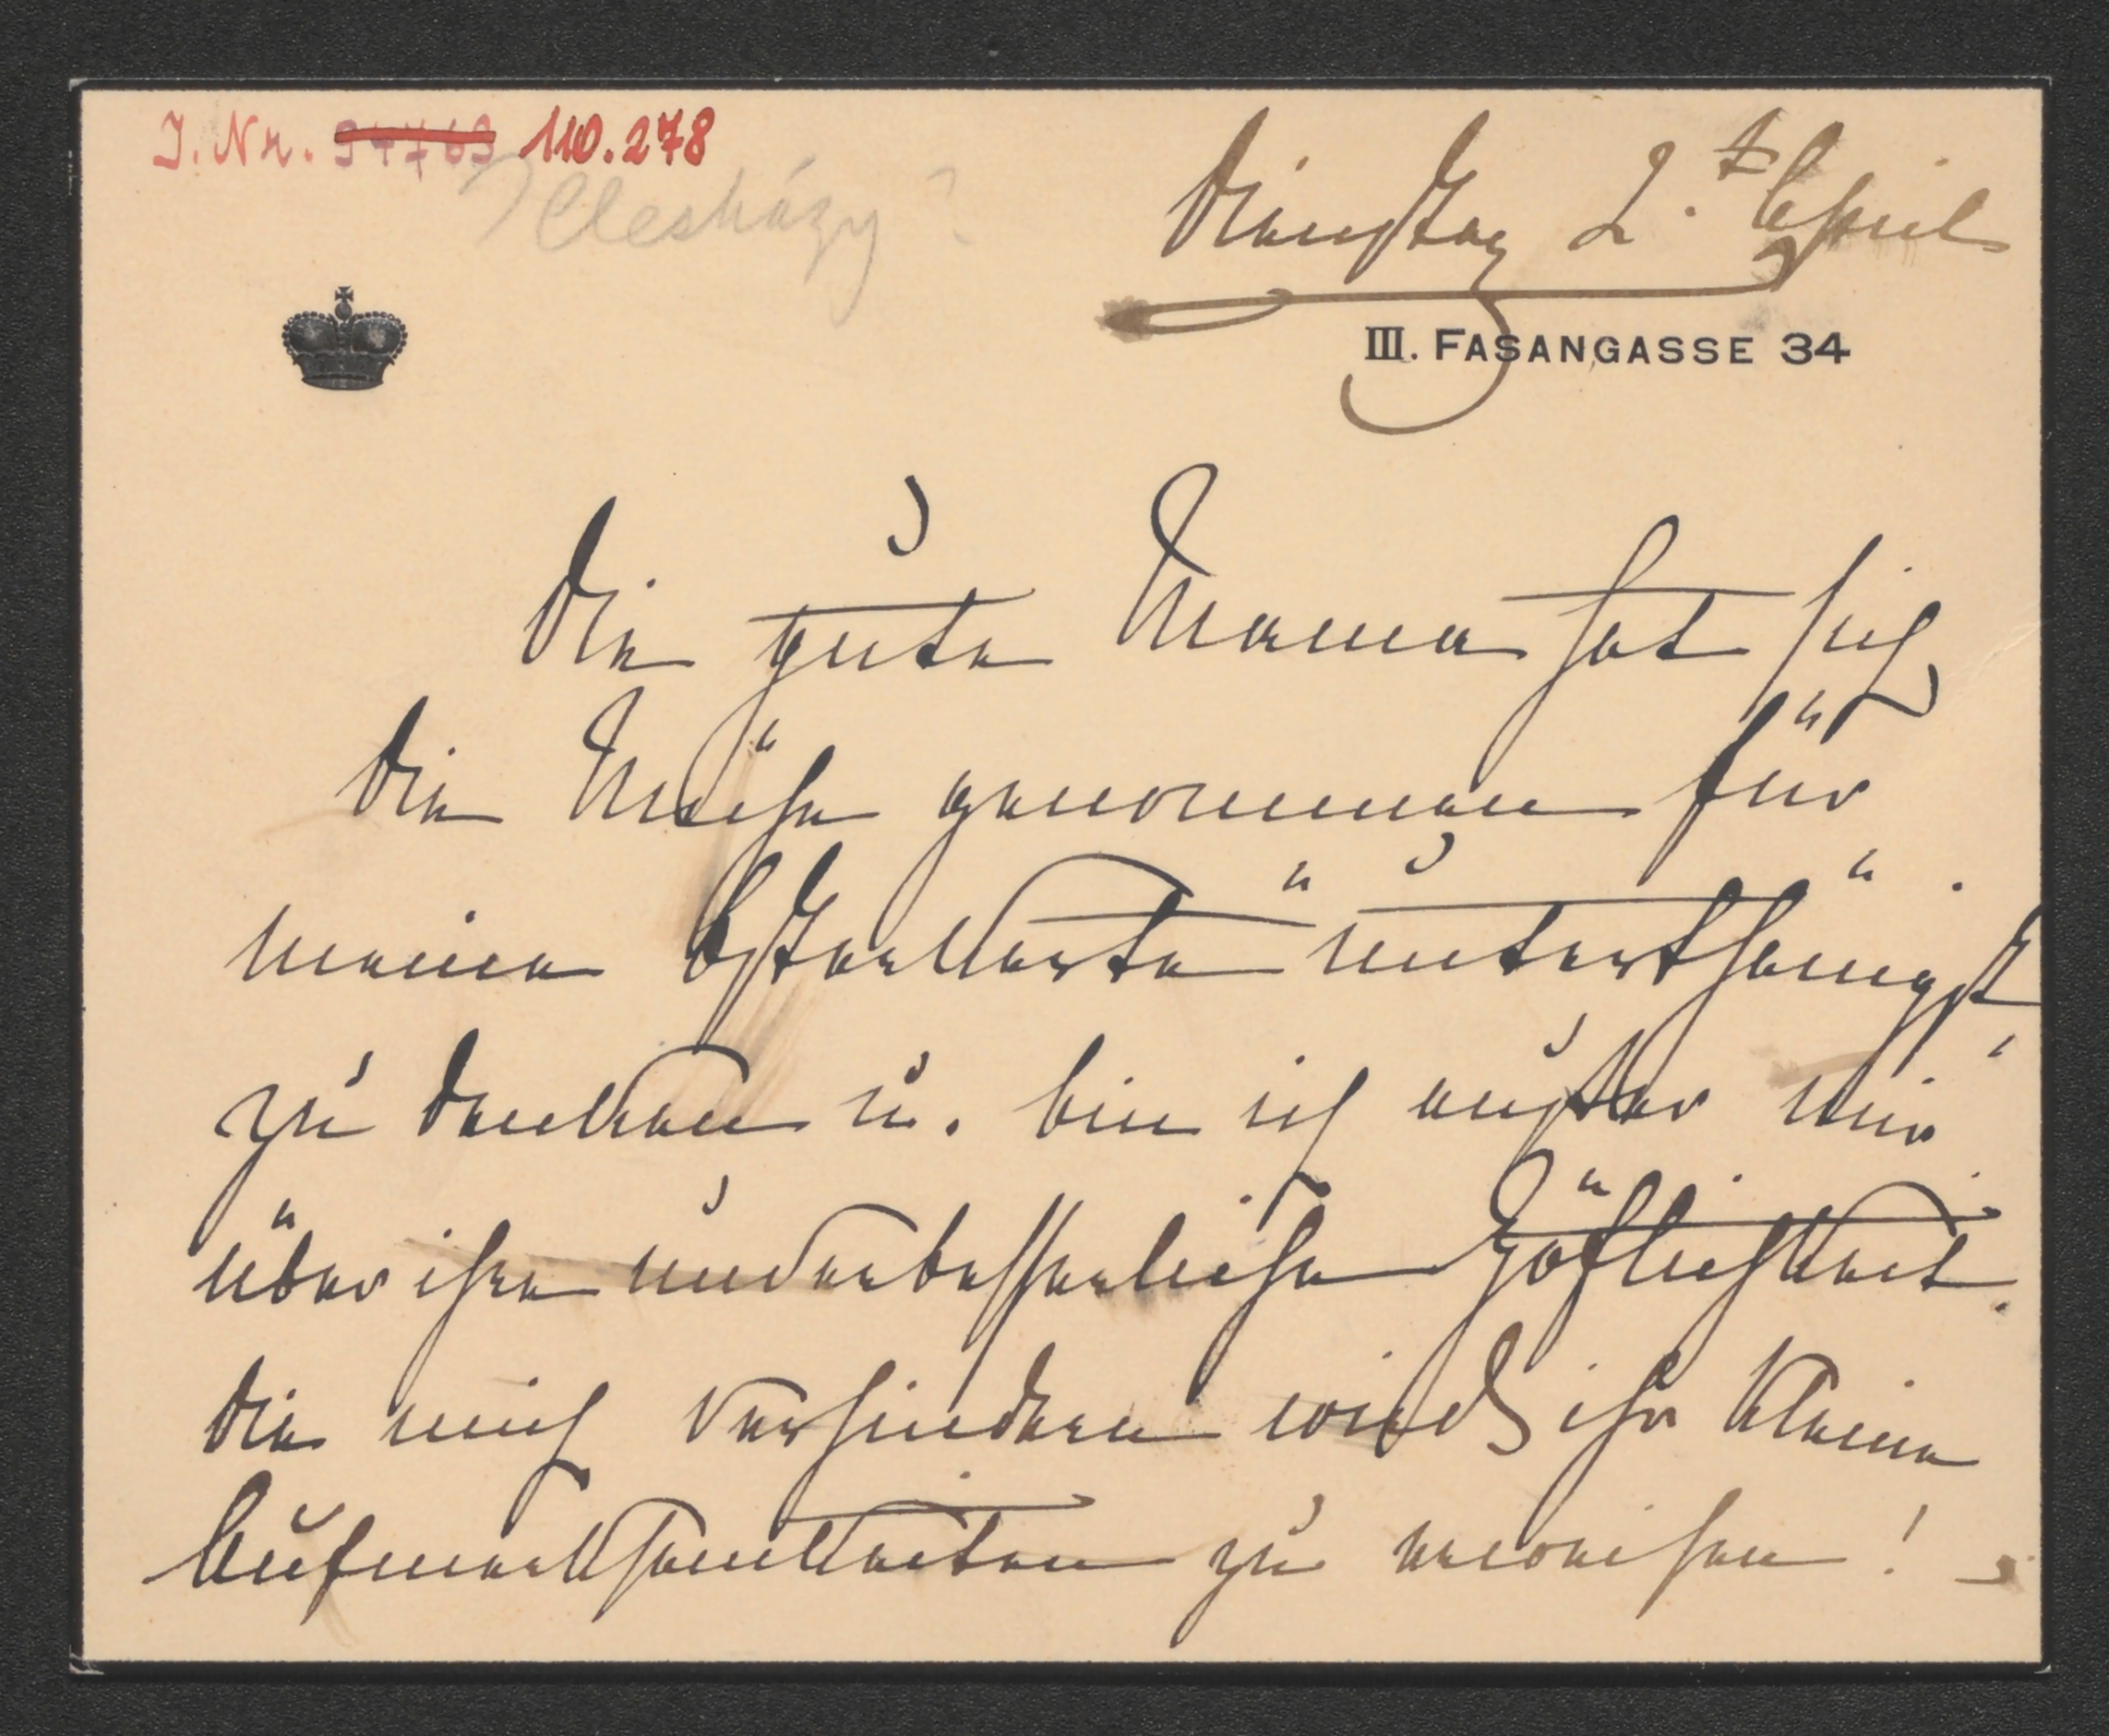 I. Nr. 94763 110.278
Dienstag 2.t April
III. FASANGASSE 34
Die gute Mama hat sich
die Mühe genommen für
meine Osterkarte unterthänigst
zu danken u. bin ich auszer mir
über ihre unverbesserliche Höflichkeit.
die mich verhindern wird ihr kleine
Aufmerksamkeiten zu erweisen! –